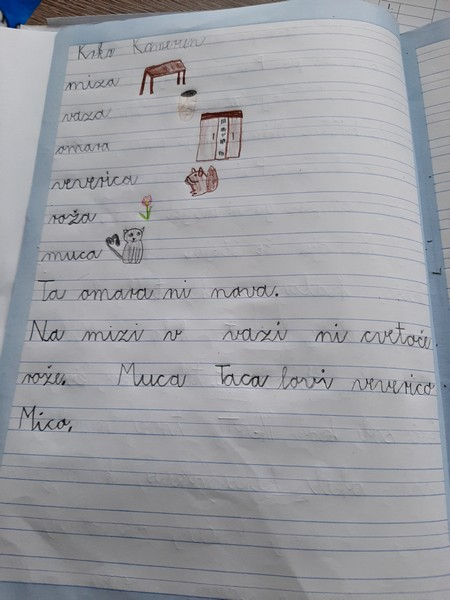 miza
vaza
omara
veverica
roža
muca
Ta omara ni nova.
Na mizi v vazi ni cvetoče
rože. Muca Taca lovi veverico
Mico.